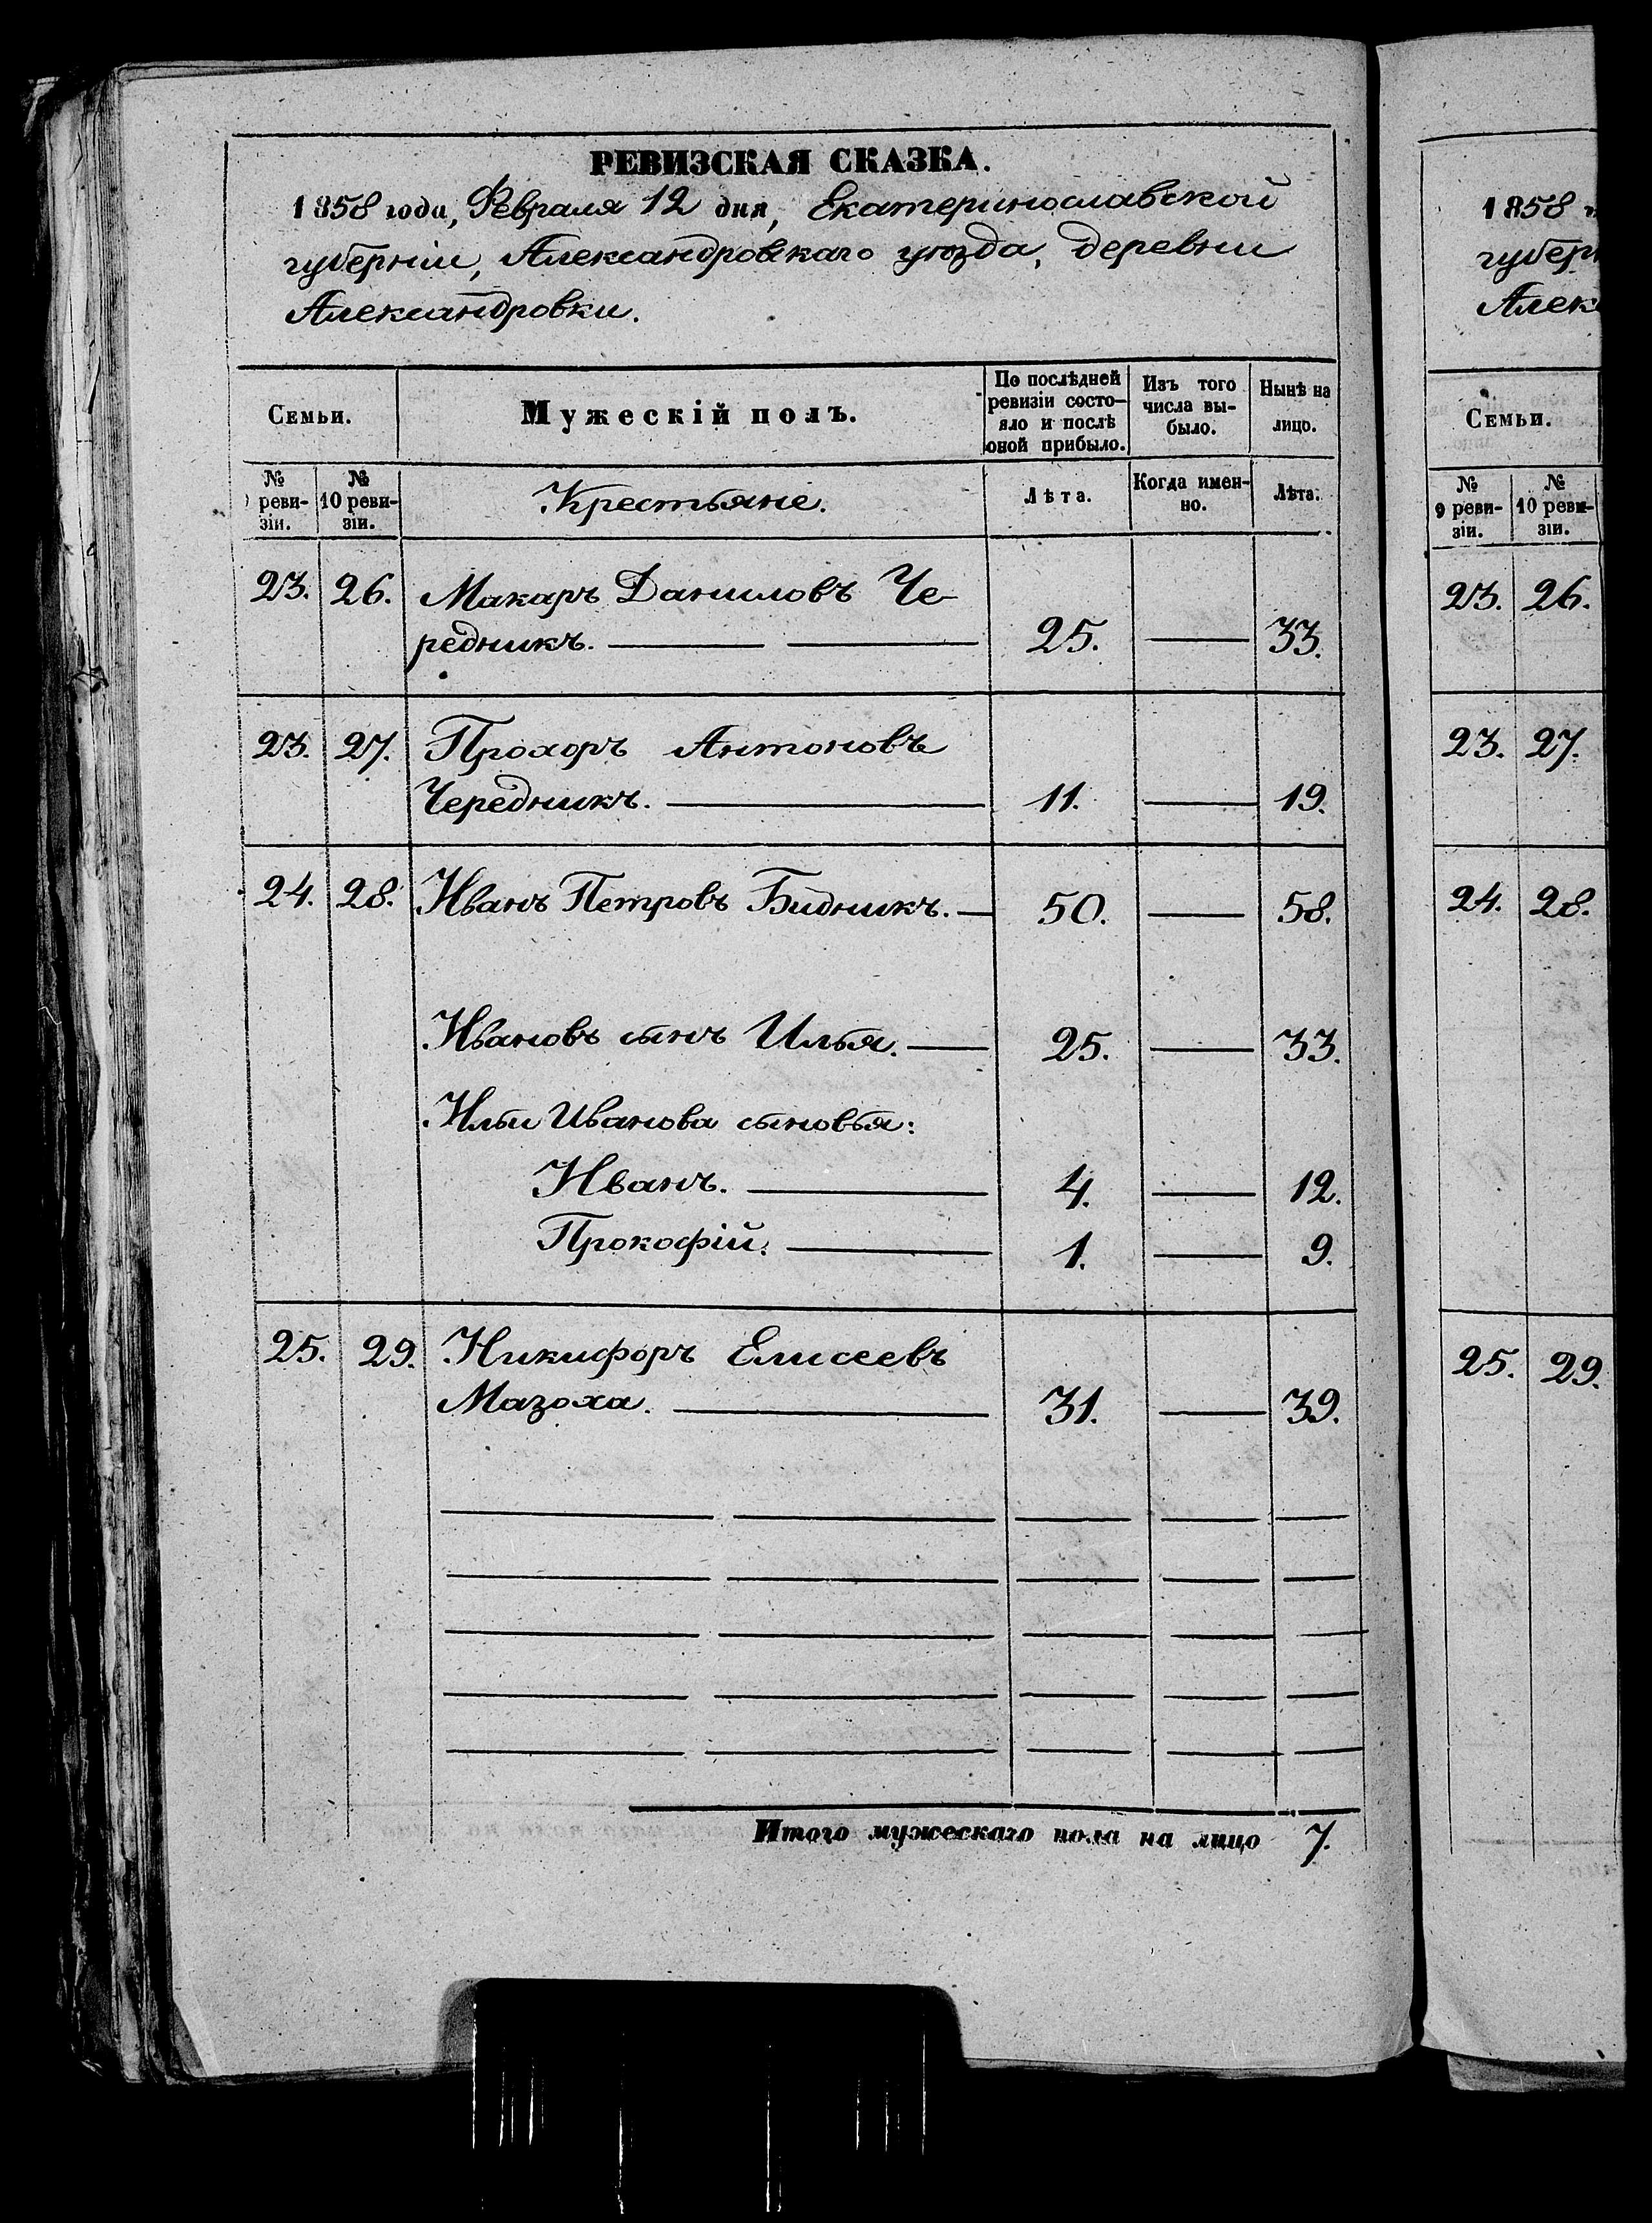 РЕВИЗСКАЯ СКАЗКА.
1858 года, Февраля 12 дня, Екатеринославской
губерніи, Александровскаго уѣзда, деревни
Александровки.
Семьи.
Мужескій полъ.
По послѣдней
ревизіи состо-
яло и послѣ
оной прибыло.
Изъ того
числа вы-
было.
Нынѣ на
лицо.
№
9 реви-
зіи.
№
10 реви-
зіи.
Крестьяне.
Лѣта.
Когда имен-
но.
Лѣта.
23. 26. Макаръ Даниловъ Че-
редникъ. 25. — 33.
23. 27. Прохоръ Антоновъ
Чередникъ. 11. — 19.
24. 28. Иванъ Петровъ Бидникъ. — 50. — 58.
Ивановъ сынъ Илья. — 25. — 33.
Ильи Иванова сыновья:
Иванъ. — 4. — 12.
Прокофій. — 1. — 9.
25. 29. Никифоръ Елисеевъ
Мазоха. — 31. — 39.
Итого мужескаго пола на лицо 7.
1858
губер
Алек
Семьи.
№
9 реви-
зіи.
№
10 реви-
зіи.
23. 26.
23. 27.
24. 28.
25. 29.